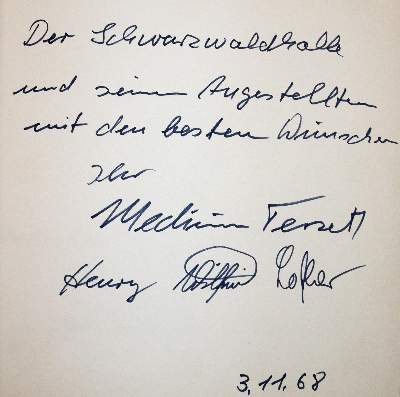 Der Schwarzwaldhalle
und seinen Angestellten
mit den besten Wünschen
Ihr
Medium Terzett
Henry Wilfried Lothar
3.11.68